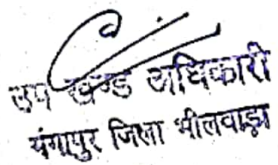 उप खण्ड अधिकारी
गंगापुर जिला भीलवाड़ा